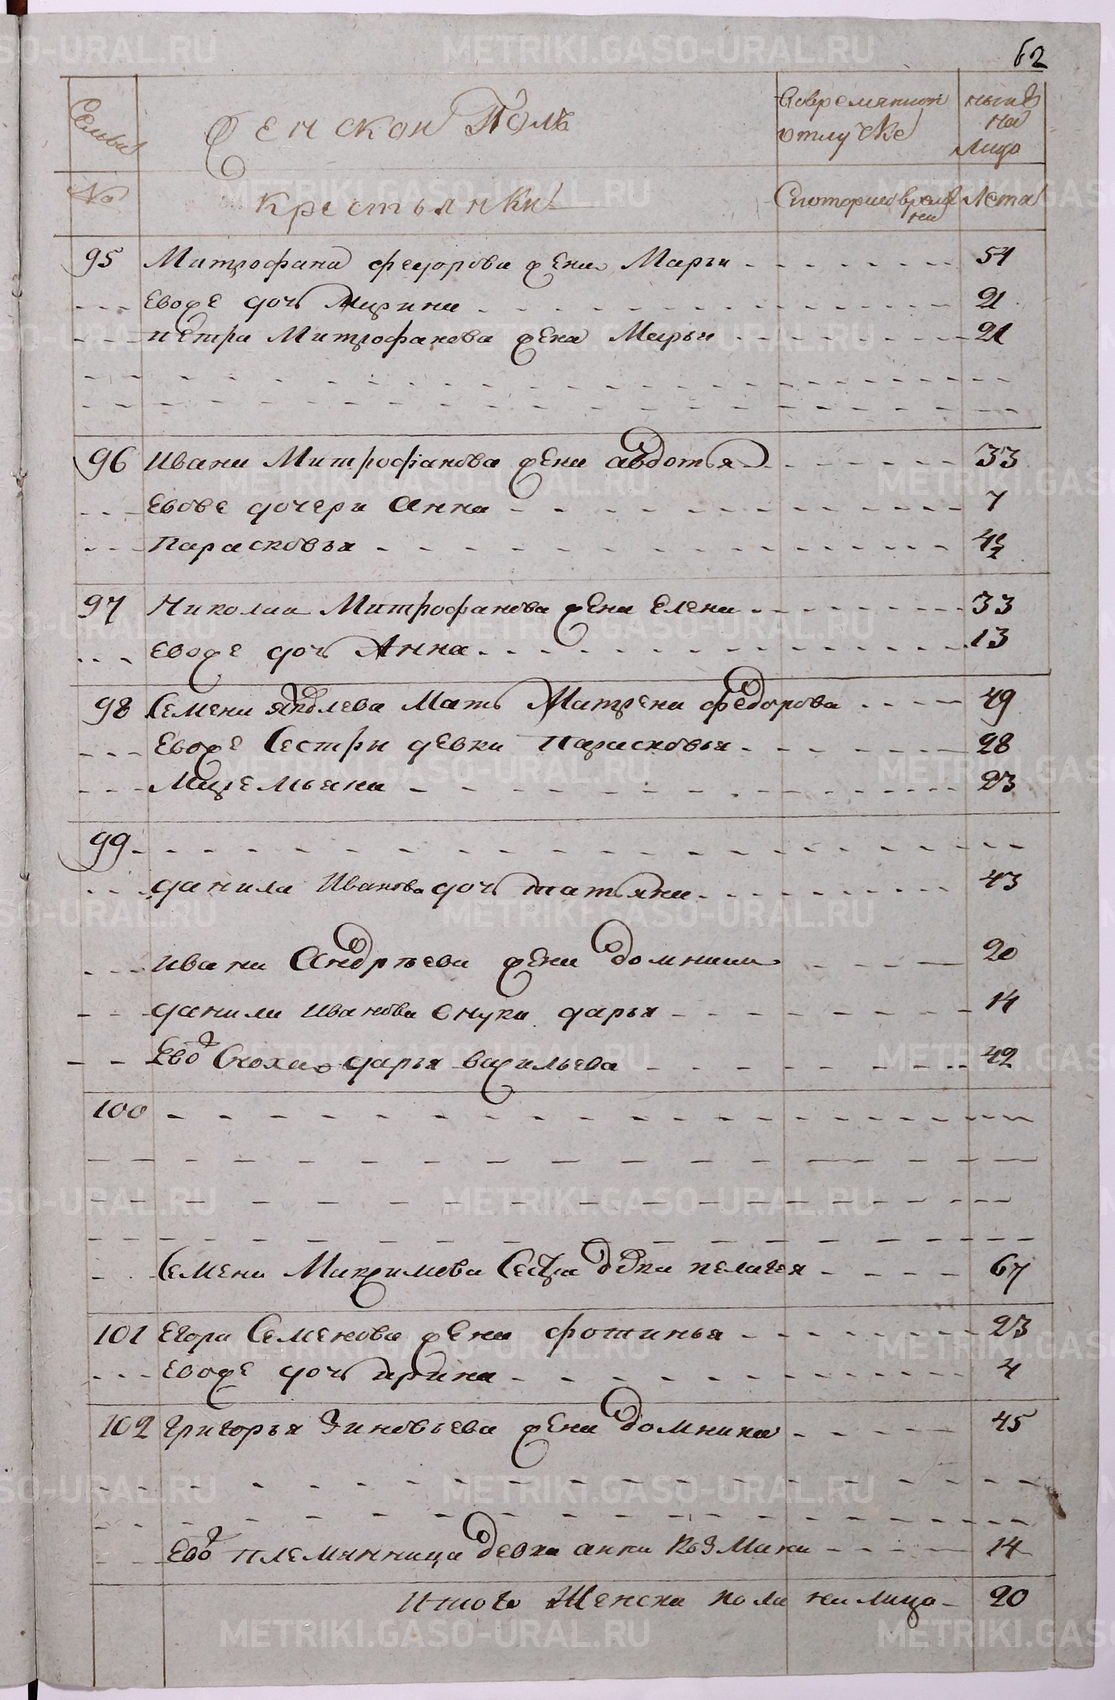 62
Семьи
Женской Полъ
Вовремянной отлучке
ныне на лицо
№
Крестьянки
Скоторого времяни
Лета
95 Митрофана федорова жена Марья 51
Евоже дочь Ирина 21
Петра Митрофанова жена Марья 21
96 Ивана Митрофанова жена авдотья 33
Евове дочери Анна 7
Парасковья
97 Николая Митрофанова жена Елена 33
Евоже дочь Анна 13
98 Семена Яковлева Мать Матрена федорова 49
Евоже Сестры девки Парасковья 28
Маремьяна 23
99
данила Иванова дочь татьяна 43
Ивана Андреева жена домника 20
данила Иванова внука дарья 14
Ево Сноха дарья васильева 42
100
Семена Максимова Сестра девка пелагея 67
101 Егора Семенова жена фотинья 23
Евоже дочь ирина 4
102 Григорья Зиновьева жена домника 45
Ево племянница девка анна Козмина 14
Итого Женска пола на лицо 20
METRIKI.GASO-URAL.RU